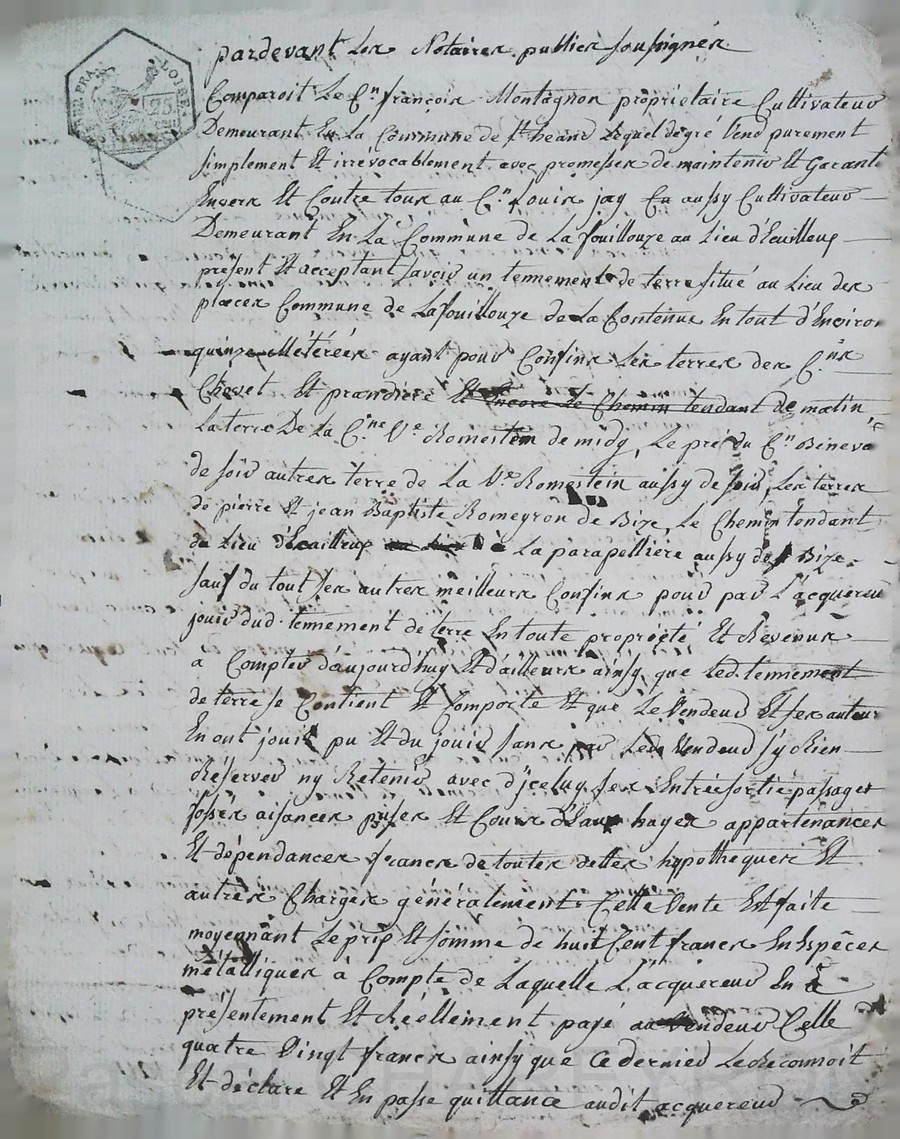 RÉP. FRA. LOIRE
25
pardevant Les Notaires publics soussignés
Comparoit Le C.en françois Montagnon propriétaire Cultivateur
Demeurant En La Commune de St heand Lequel de gré Vend purement
simplement Et irrevocablement avec promesses de maintenir Et Garantir
Envers Et Contre tous au C.en Louis jay En aussy Cultivateur
Demeurant En La Commune de La fouillouze au Lieu d'
présent Et acceptant savoir un tennement de terre situé au Lieu des
places Commune de Lafouillouze de La Contenue En tout d'Environ
quinze Métérées ayant pour Confins Les terres des C.ens
Chovet Et prandière Et Encore Le Chemin tendant de matin
La terre De La C.ne Ve Romestein de midy, Le pré du C.en
de soir autres terre de La Ve Romestein aussy de soir, Les terres
de pierre Et jean Baptiste Romeyron de Bize, Le Chemin tendant
du Lieu à La parapelliere aussy de Bize
sauf du tout ses autres meilleurs Confins pour par L'acquereur
jouir dud. tennement de terre En toute propriété Et Revenus
a Compter d'aujourd'huy Et d'ailleurs ainsy que Led. tennement
de terre se Contient Et Comporte Et que Le Vendeur Et ses auteurs
En ont jouis pu Et du jouir sans par Led. Vendeur s'y Rien
Réserver ny Retenir avec d'jceluy ses Entrées sortie passages
fossés aisances prises Et Cours d'Eaux hayes appartenances
Et dépendances francs de toutes dettes hypotheques Et
autres Charges généralement. Cette Vente Est faite
moyennant Le prix Et somme de huit Cent francs En Espéces
métalliques à Compte de Laquelle L'acquereur En a
présentement Et Réellement payé au Vendeur Celle
quatre Vingt francs ainsy que Ce dernier Le Reconnoit
Et déclare Et En passe quittance audit acquereur